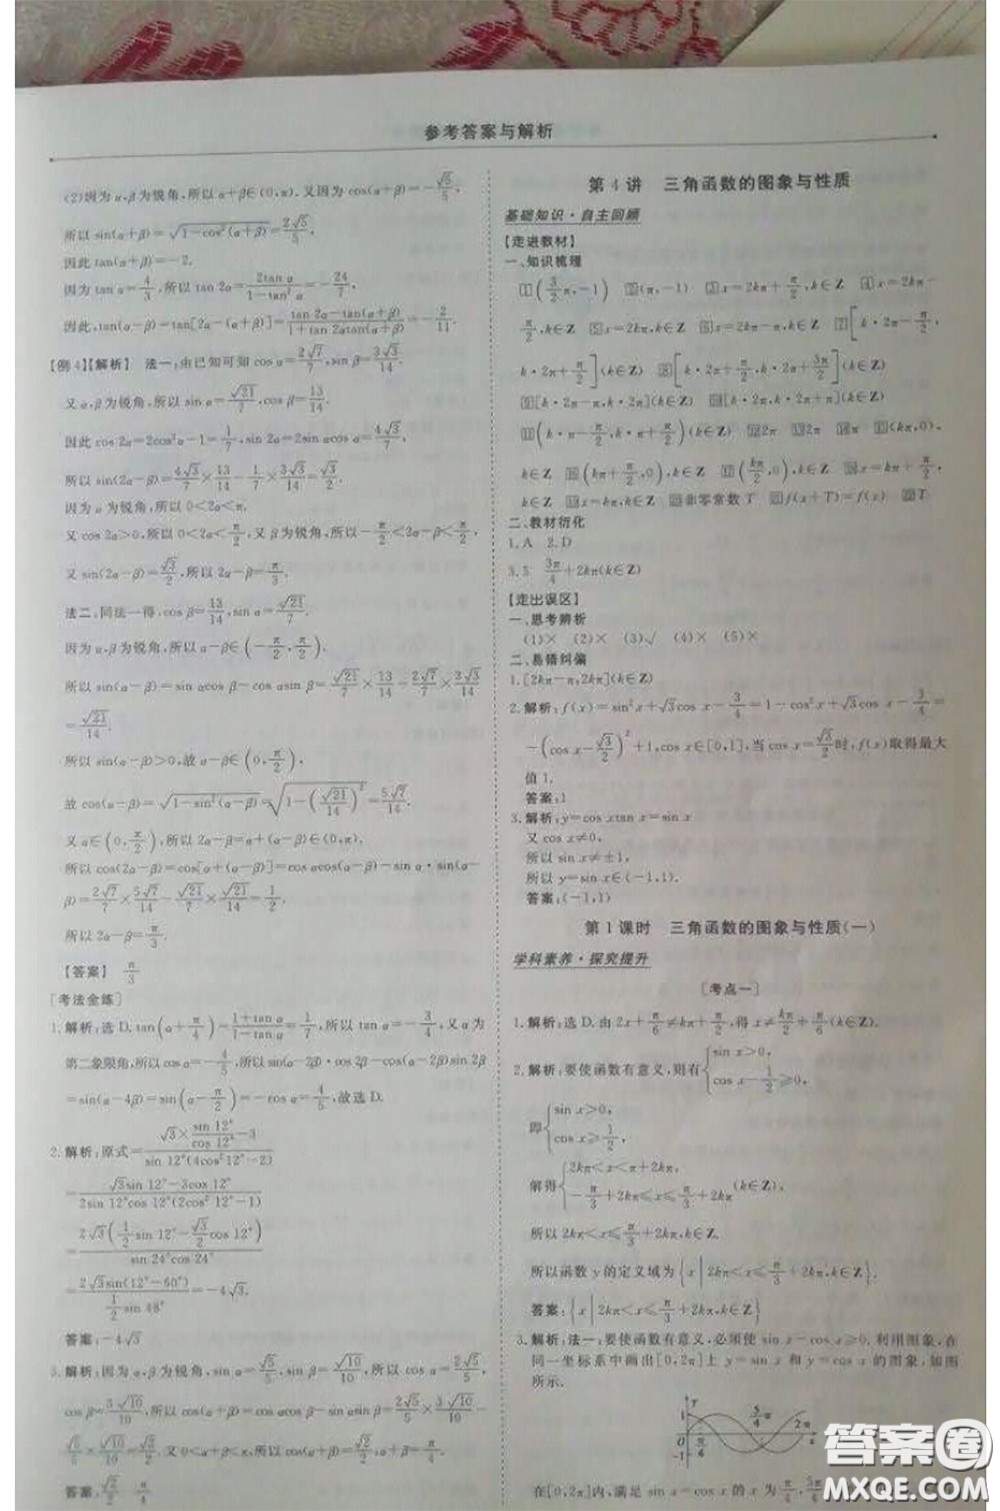 参考答案与解析
(2)因为α,β为锐角,所以α+β∈(0,π).又因为cos(α+β)=-√5/5,
所以sin(α+β)=√(1-cos²(α+β))=2√5/5,
因此tan(α+β)=-2.
因为tan α=4/3,所以tan 2α=2tan α/(1-tan²α)=-24/7,
因此,tan(α-β)=tan[2α-(α+β)]=(tan 2α-tan(α+β))/(1+tan 2αtan(α+β))=-2/11.
【例4】【解析】 法一:由已知可知cos α=2√7/7,sin β=3√3/14.
又α,β为锐角,所以sin α=√21/7,cos β=13/14.
因此cos 2α=2cos²α-1=1/7,sin 2α=2sin αcos α=4√3/7,
所以sin(2α-β)=4√3/7×13/14-1/7×3√3/14=√3/2.
因为α为锐角,所以0<2α<π.
又cos 2α>0,所以0<2α<π/2,又β为锐角,所以-π/2<2α-β<π/2,
又sin(2α-β)=√3/2,所以2α-β=π/3.
法二:同法一得,cos β=13/14,sin α=√21/7.
因为α,β为锐角,所以α-β∈(-π/2,π/2).
所以sin(α-β)=sin αcos β-cos αsin β=√21/7×13/14-2√7/7×3√3/14
=√21/14.
所以sin(α-β)>0,故α-β∈(0,π/2),
故cos(α-β)=√(1-sin²(α-β))=√(1-(√21/14)²)=5√7/14.
又α∈(0,π/2),所以2α-β=α+(α-β)∈(0,π).
所以cos(2α-β)=cos[α+(α-β)]=cos αcos(α-β)-sin α·sin(α-
β)=2√7/7×5√7/14-√21/7×√21/14=1/2.
所以2α-β=π/3.
【答案】 π/3
[考法全练]
1.解析:选D.tan(α+π/4)=(1+tan α)/(1-tan α)=1/7,所以tan α=-3/4,又α为
第二象限角,所以cos α=-4/5,所以sin(α-2β)·cos 2β-cos(α-2β)sin 2β
=sin(α-4β)=sin(α-π/2)=-cos α=4/5,故选D.
2.解析:原式=(√3×sin 12°/cos 12°-3)/(sin 12°(4cos²12°-2))
=(√3sin 12°-3cos 12°)/(2sin 12°cos 12°(2cos²12°-1))
=2√3(1/2sin 12°-√3/2cos 12°)/(sin 24°cos 24°)
=2√3sin(12°-60°)/(1/2sin 48°)=-4√3.
答案:-4√3
3.解析:因为α,β为锐角,sin α=√5/5,sin β=√10/10,所以cos α=2√5/5,
cos β=3√10/10,所以cos(α+β)=cos αcos β-sin αsin β=2√5/5×3√10/10-
√5/5×√10/10=√2/2.又0<α+β<π,所以α+β=π/4.
答案:√2/2 π/4
第4讲 三角函数的图象与性质
基础知识·自主回顾
【走进教材】
一、知识梳理
1(3/2π,-1) 2(π,-1) 3x=2kπ+π/2,k∈Z 4x=2kπ-
π/2,k∈Z 5x=2kπ,k∈Z 6x=2kπ+π,k∈Z 7[k·2π-π/2,
k·2π+π/2](k∈Z) 8[k·2π+π/2,k·2π+3π/2](k∈Z)
9[k·2π-π,k·2π](k∈Z) 10[k·2π,k·2π+π](k∈Z)
11(k·π-π/2,k·π+π/2)(k∈Z) 122π 132π 14π 15(kπ,0),
k∈Z 16(kπ+π/2,0),k∈Z 17(kπ/2,0),k∈Z 18x=kπ+π/2,
k∈Z 19x=kπ,k∈Z 20非零常数T 21f(x+T)=f(x) 22T
二、教材衍化
1.A 2.D
3.5 3π/4+2kπ(k∈Z)
【走出误区】
一、思考辨析
(1)× (2)× (3)√ (4)× (5)×
二、易错纠偏
1.[2kπ-π,2kπ](k∈Z)
2.解析:f(x)=sin²x+√3cos x-3/4=1-cos²x+√3cos x-3/4=
-(cos x-√3/2)²+1,cos x∈[0,1],当cos x=√3/2时,f(x)取得最大
值1.
答案:1
3.解析:y=cos xtan x=sin x
又cos x≠0,
所以sin x≠±1,
所以y=sin x∈(-1,1).
答案:(-1,1)
第1课时 三角函数的图象与性质(一)
学科素养·探究提升
[考点一]
1.解析:选D.由2x+π/6≠kπ+π/2,得x≠kπ/2+π/6(k∈Z).
2.解析:要使函数有意义,则有{sin x>0,
cos x-1/2≥0,
即{sin x>0,
cos x≥1/2,
解得{2kπ<x<π+2kπ,
-π/3+2kπ≤x≤π/3+2kπ(k∈Z),
所以2kπ<x≤π/3+2kπ,k∈Z,
所以函数y的定义域为{x|2kπ<x≤π/3+2kπ,k∈Z}.
答案:{x|2kπ<x≤π/3+2kπ,k∈Z}
3.解析:法一:要使函数有意义,必须使sin x-cos x≥0.利用图象,在
同一坐标系中画出[0,2π]上y=sin x和y=cos x的图象,如图
所示.
y
1
0
-1
π/4
5/4π
2π
x
在[0,2π]内,满足sin x=cos x的x为π/4,5π/4
答案圈
MXQE.COM